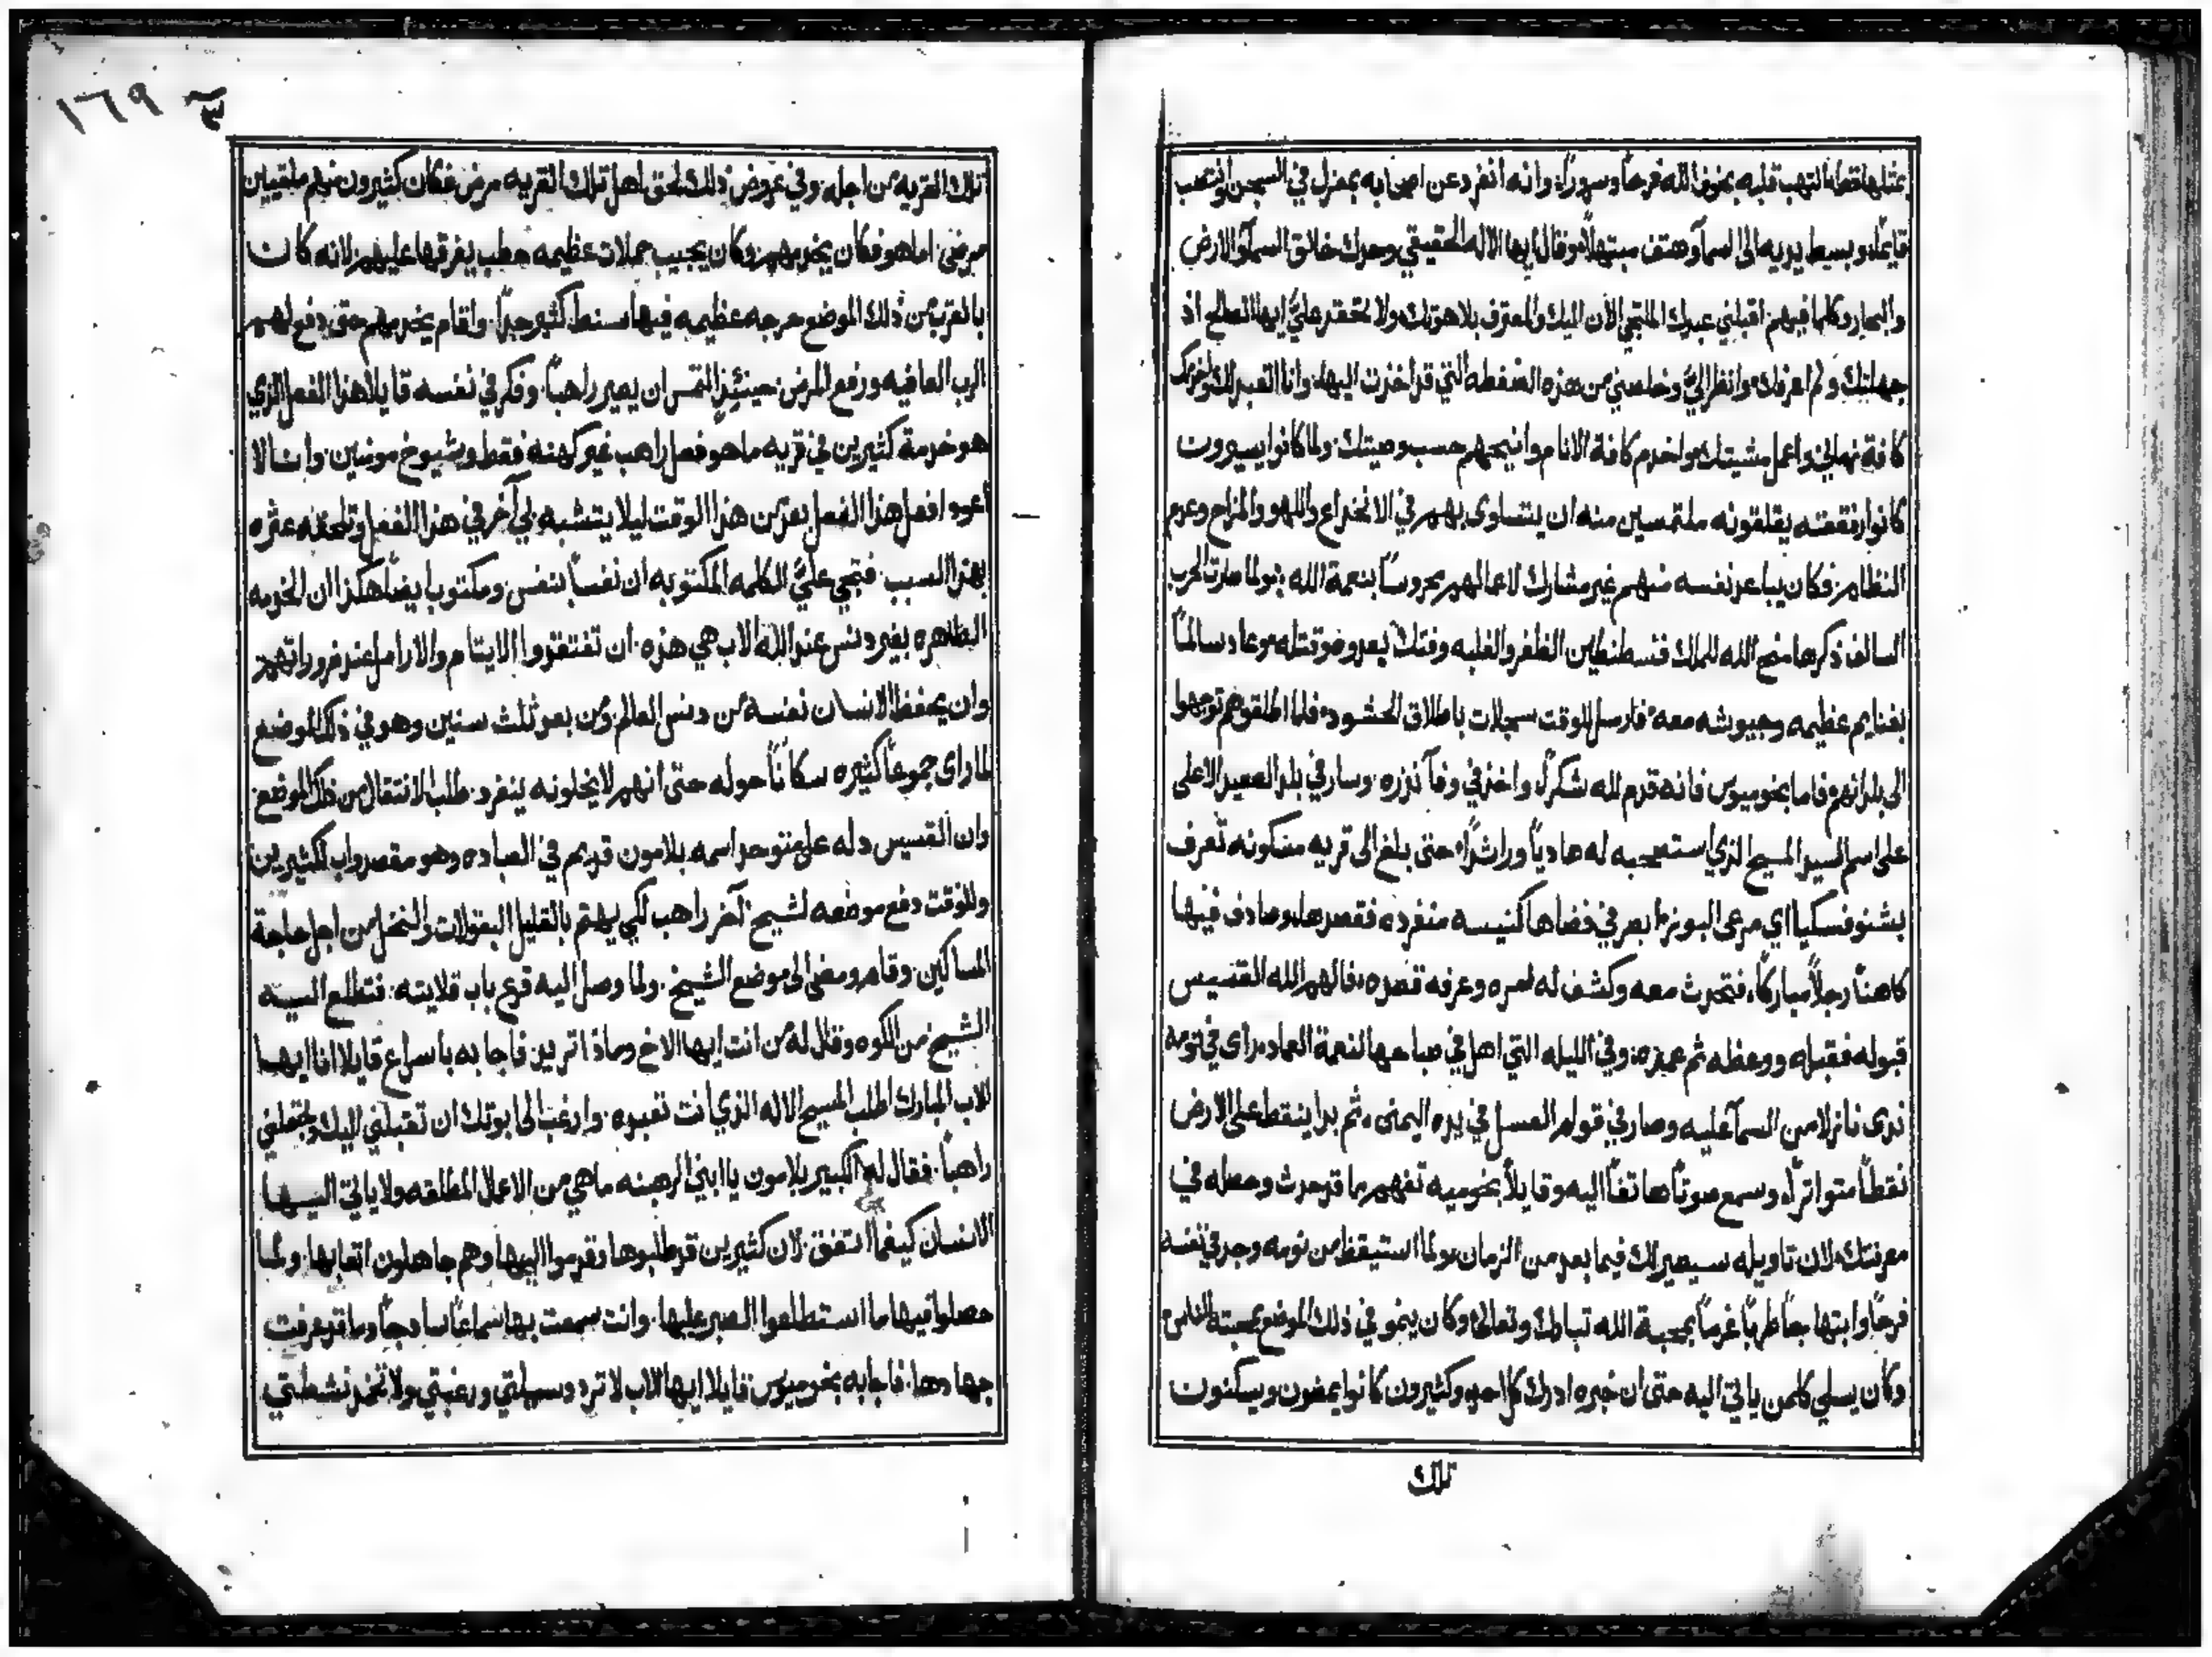 بمثلها قط التهب قلبه بخوف الله فرحًا وسرورًا وانه انفرد عن اصحابه بمعزل في السجن وانتصب
قايمًا وبسيط يديه الى السمآ وهتف مبتهلًا وقال ايها الاله الحقيقي وحدك خالق السمآ والارض
والبحار وكلما فيهم اقبلني عبدك الملتجي الان اليك والمعترف بلاهوتك ولا تحقد عليَّ ايها الصالح اذ
جهلتك ولم اعرفك وانظر اليَّ وخلصني من هذه الضغطه التي قد اخذت اليها وانا اتعبد لك واخدمك
كافة زماني واعمل مشيتك واخدم كافة الانام وانيحهم حسب وصيتك ولما كانوا يسيروت
كانوا رفقته يقلقونه ملتمسين منه ان يتساوى بهم في الانخداع واللهو والمزاح وعدم
النظام فكان يباعد نفسه منهم غير مشارك لاعمالهم محروسًا بنعمة الله ولما صارت الحرب
السالف ذكرها منح الله للملك قسطنطين الظفر والغلبه وفتك بعدوه وقتله وعاد سالمًا
بغنايم عظيمه وجيوشه معه فارسل للوقت سجلات باطلاق الحشود فلما اطلقوهم توجهوا
الى بلدانهم فاما بخوميوس فانه قدم لله شكرًا واخذ في وفآ نذره وسار في بلد الصعيد الاعلى
على اسم السيد المسيح الذي استصحبه له هاديًا وراشدًا حتى بلغ الى قريه مسكونه تعرف
بشنوفسكيا اي مرعى البونز ابصر في فضاها كنيسه منفرده فقصدها وصادف فيها
كاهنًا رجلًا مباركًا فتحدث معه وكشف له امره وعرفه قصده فالهم الله القسيس
قبوله فقبله ووعظه ثم عمده وفي الليله التي اهل في صباحها لنعمة العماد راى في نومه
ندى نازلا من السمآ عليه وصار في قوام العسل في يده اليمنى ثم بدا ينقط على الارض
نقطًا متواترًا وسمع صوتًا هاتفًا اليه وقايلًا بخوميه تفهم ما قد حدث وحصله في
معرفتك لان تاويله سيصير لك فيما بعد من الزمان ولما استيقظ من نومه وجد في نفسه
فرحًا وابتهاجًا طربًا غرمًا بمحبة الله تبارك وتعالى وكان ينمو في ذلك الموضع بمحبته الناس
وكان يسلي كلمن ياتي اليه حتى ان خبره ادرك كل احد وكثيرون كانوا يمضون ويسكنون
تلك
١٦٩
تلك القريه من اجله وفي عروض ذلك لحق اهل تلك القريه مرض فكان كثيرون منهم ملقيين
مرضى اما هو فكان يخدمهم وكان يجيب حملات عظيمه حطب يفرقها عليهم لانه كان
بالقرب من ذلك الموضع حرجه عظيمه فيها سنط كثير جدًا واقام يخدمهم حتى دفع لهم
الرب العافيه ورفع المرض حينئذٍ التمس ان يصير راهبًا وفكر في نفسه قايلا هذا الفعل الذي
هو خدمة كثيرين في قريه ما هو فعل راهب غير كهنه فقط وشيوخ مومنين وانا لا
اعود افعل هذا الفعل بعد من هذا الوقت ليلا يتشبه بي آخر في هذا الفعل وتلحقه عثره
بهذا السبب فتجي عليَّ الكلمه المكتوبه ان نفسًا بنفس ومكتوب ايضًا هكذا ان الخدمه
الطاهره بغير دنس عند الله الاب هي هذه ان تفتقدوا الايتام والارامل عند ضروراتهم
وان يحفظ الانسان نفسه من دنس العالم ومن بعد ثلث سنين وهو في ذلك الموضع
لما راى جموعًا كثيره سكانًا حوله حتى انهم لا يخلونه ينفرد طلب الانتقال من ذلك الموضع
وان القسيس دله على متوحد اسمه بلامون قديم في العباده وهو مقصد واب لكثيرين
وللوقت دفع موضعه لشيخ آخر راهب لكي يهتم بالقليل البقولات والنخل من اجل حاجة
المساكين وقام ومضى الى موضع الشيخ ولما وصل اليه قرع باب قلايته فتطلع اليه
الشيخ من الكوه وقال له من انت ايها الاخ وماذا تريد فاجابه باسراع قايلا انا ايها
الاب المبارك اطلب المسيح الاله الذي انت تعبده وارغب الى ابوتك ان تقبلني اليك وتجعلني
راهبًا فقال له الكبير بلامون يا ابني الرهبنه ما هي من الاعمال المطلقه ولا ياتي اليها
الانسان كيفما اتفق لان كثيرين قد طلبوها وقدموا اليها وهم جاهلون اتعابها ولما
حصلوا فيها ما استطاعوا الصبر عليها وانت سمعت بها سماعًا ساذجًا وما قد عرفت
جهادها فاجابه بخوميوس قايلا ايها الاب لا ترد وسيلتي ورغبتي ولا تخمد نشطتي